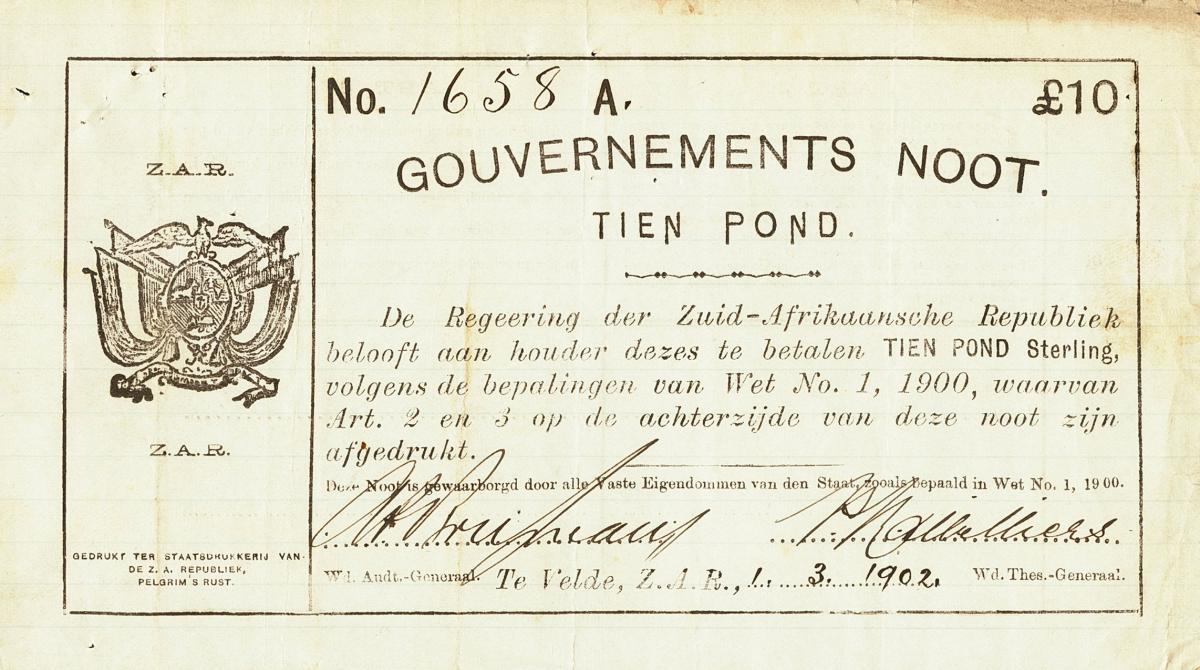 Z.A.R.
Z.A.R.
GEDRUKT TER STAATSDRUKKERIJ VAN
DE Z. A. REPUBLIEK,
PELGRIM'S RUST.
No. 1658 A. £10
GOUVERNEMENTS NOOT.
TIEN POND.
De Regeering der Zuid-Afrikaansche Republiek
belooft aan houder dezes te betalen TIEN POND Sterling,
volgens de bepalingen van Wet No. 1, 1900, waarvan
Art. 2 en 3 op de achterzijde van deze noot zijn
afgedrukt.
Deze Noot is gewaarborgd door alle Vaste Eigendommen van den Staat, zooals bepaald in Wet No. 1, 1900.
Wd. Audt.-Generaal. Te Velde, Z.A.R., 1. 3. 1902. Wd. Thes.-Generaal.